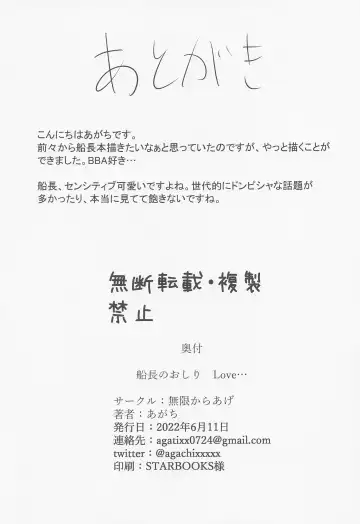 あとがき
こんにちはあがちです。
前々から船長本描きたいなぁと思っていたのですが、やっと描くことが
できました。BBA好き…
船長、センシティブ可愛いですよね。世代的にドンピシャな話題が
多かったり、本当に見てて飽きないですね。
無断転載・複製
禁止
奥付
船長のおしり Love…
サークル：無限からあげ
著者：あがち
発行日：2022年6月11日
連絡先：agatixx0724@gmail.com
twitter：@agachixxxxx
印刷：STARBOOKS様